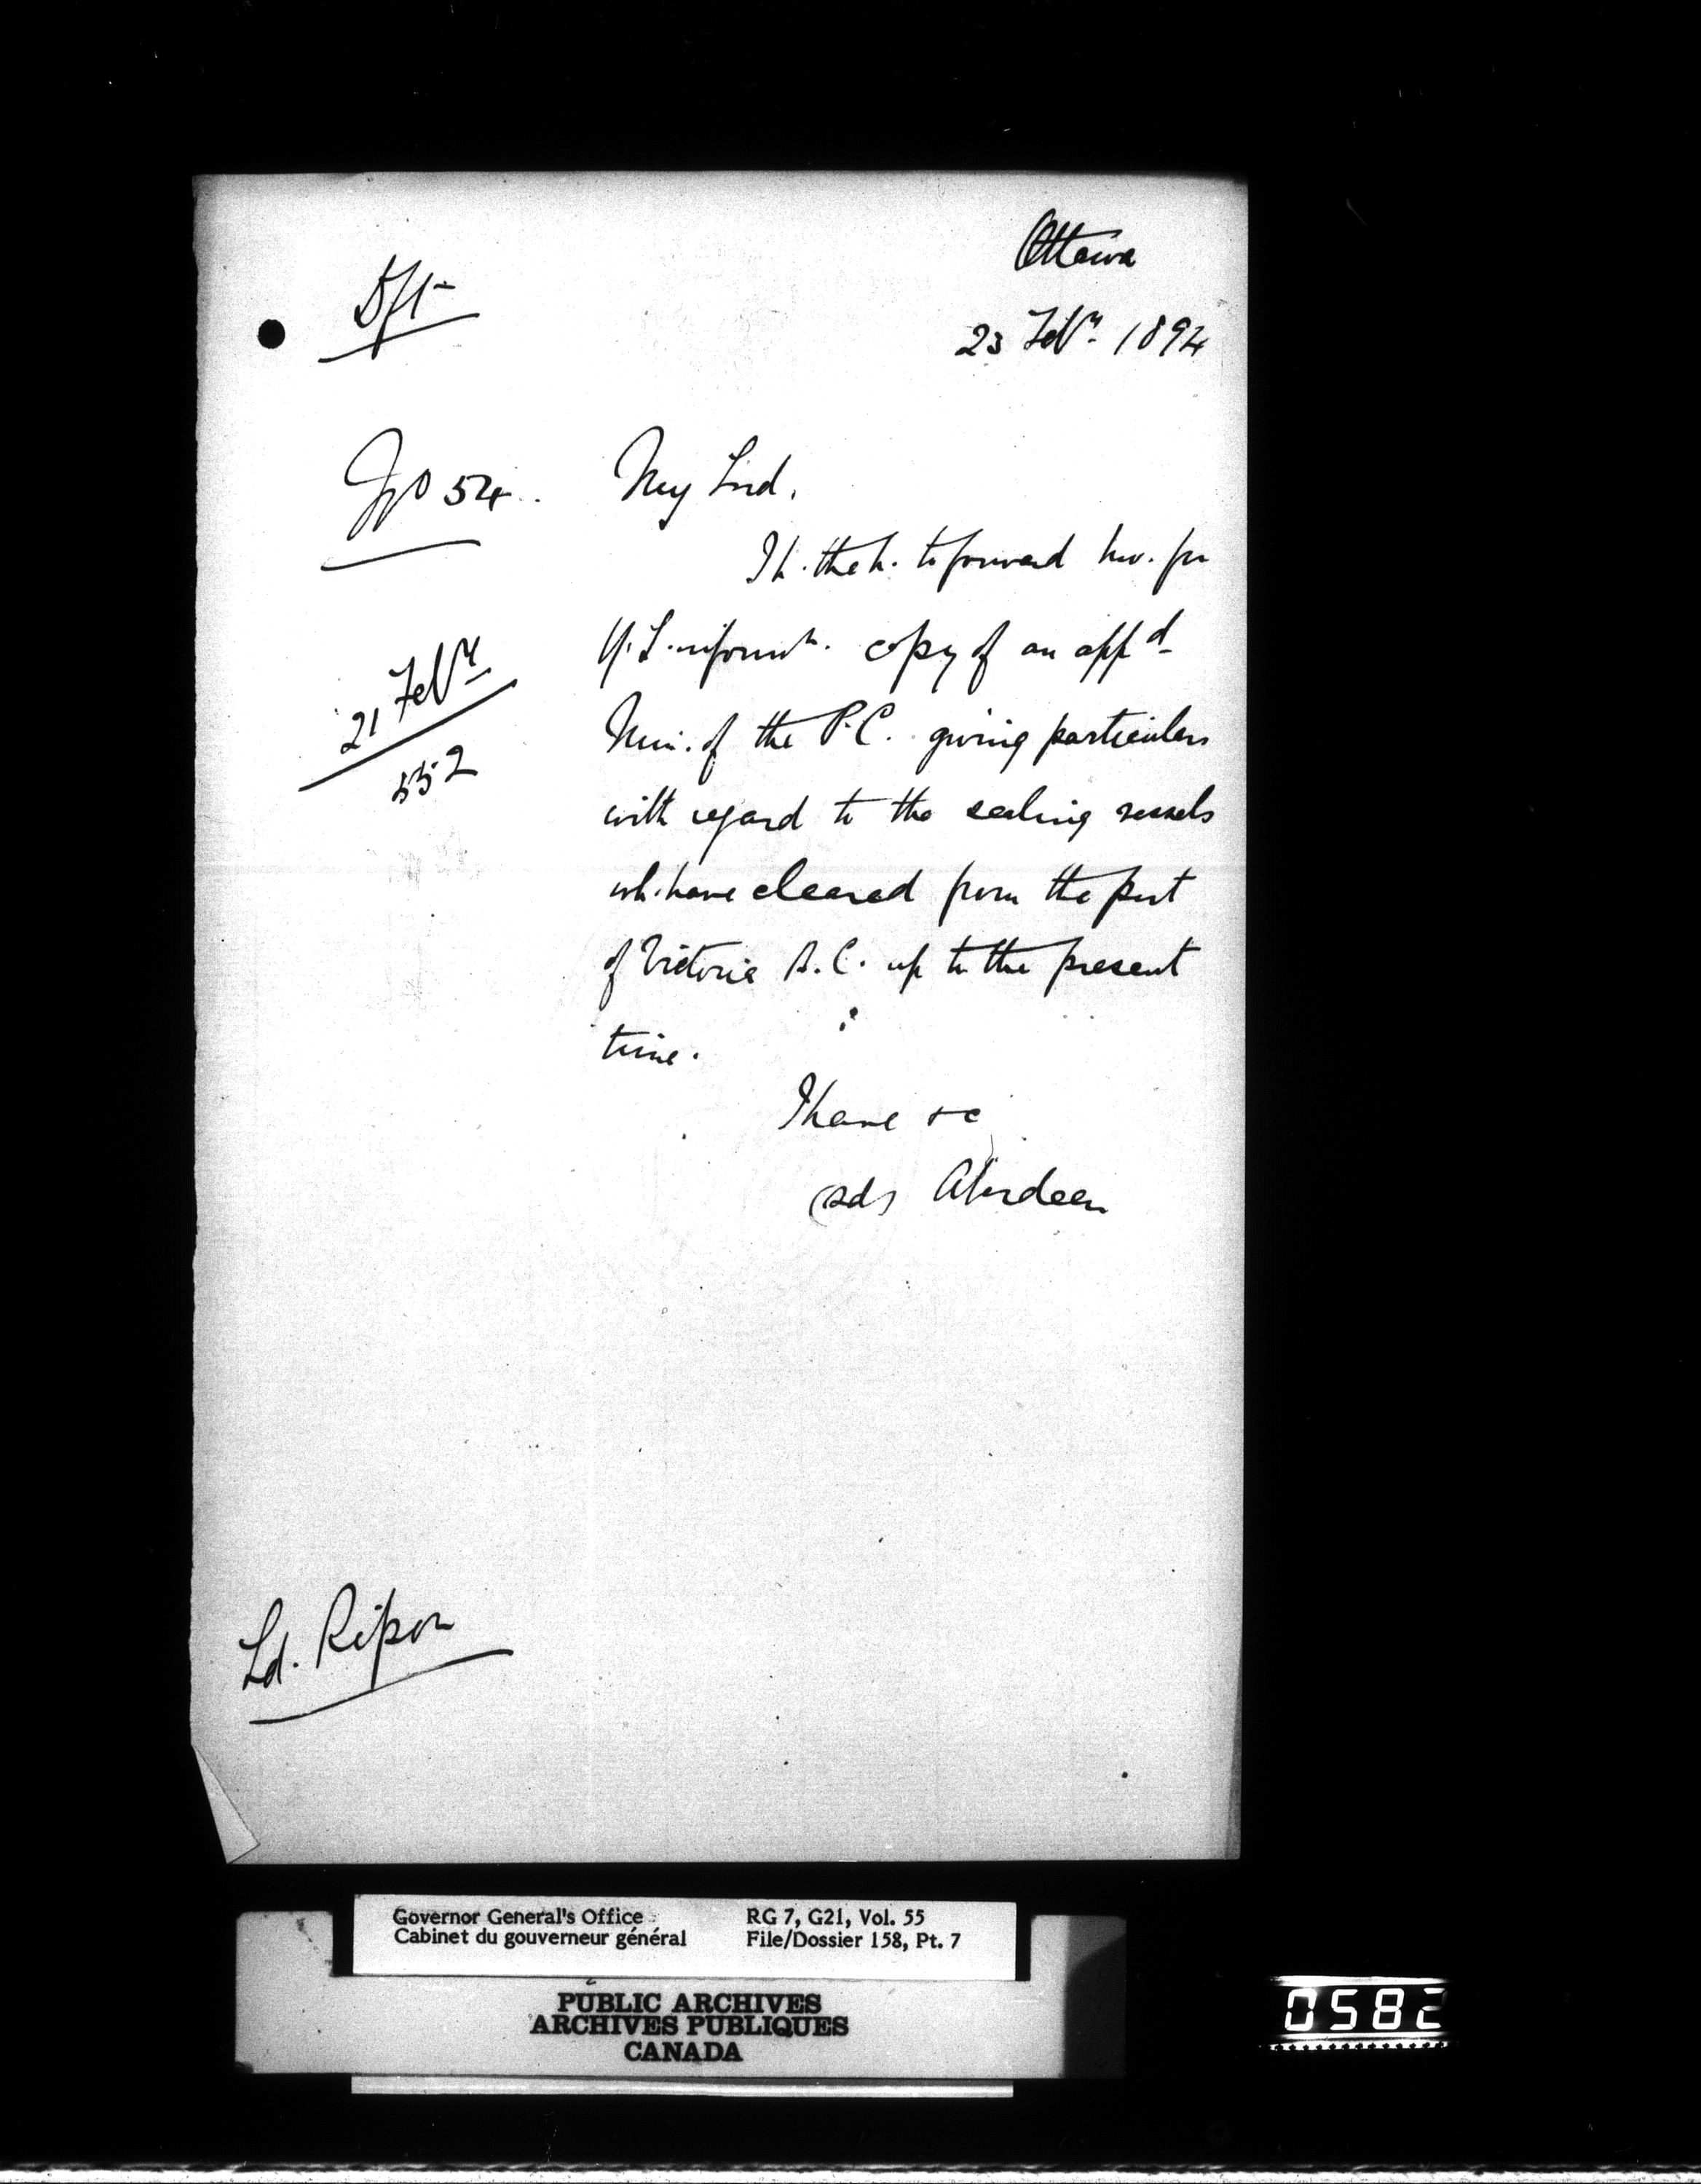 Ottawa
Dft
23 Feby. 1894
No 54.
My Lord,
I h. the h. to forward hw. for
Y. L. informn. copy of an appd
21 Feby
Min. of the P.C. giving particulars
552
with regard to the sealing vessels
wh. have cleared from the port
of Victoria B.C. up to the present
time.
I have &c
(sd) Aberdeen
Ld. Ripon
Governor General's Office RG 7, G21, Vol. 55
Cabinet du gouverneur général File/Dossier 158, Pt. 7
PUBLIC ARCHIVES
ARCHIVES PUBLIQUES
CANADA
0582